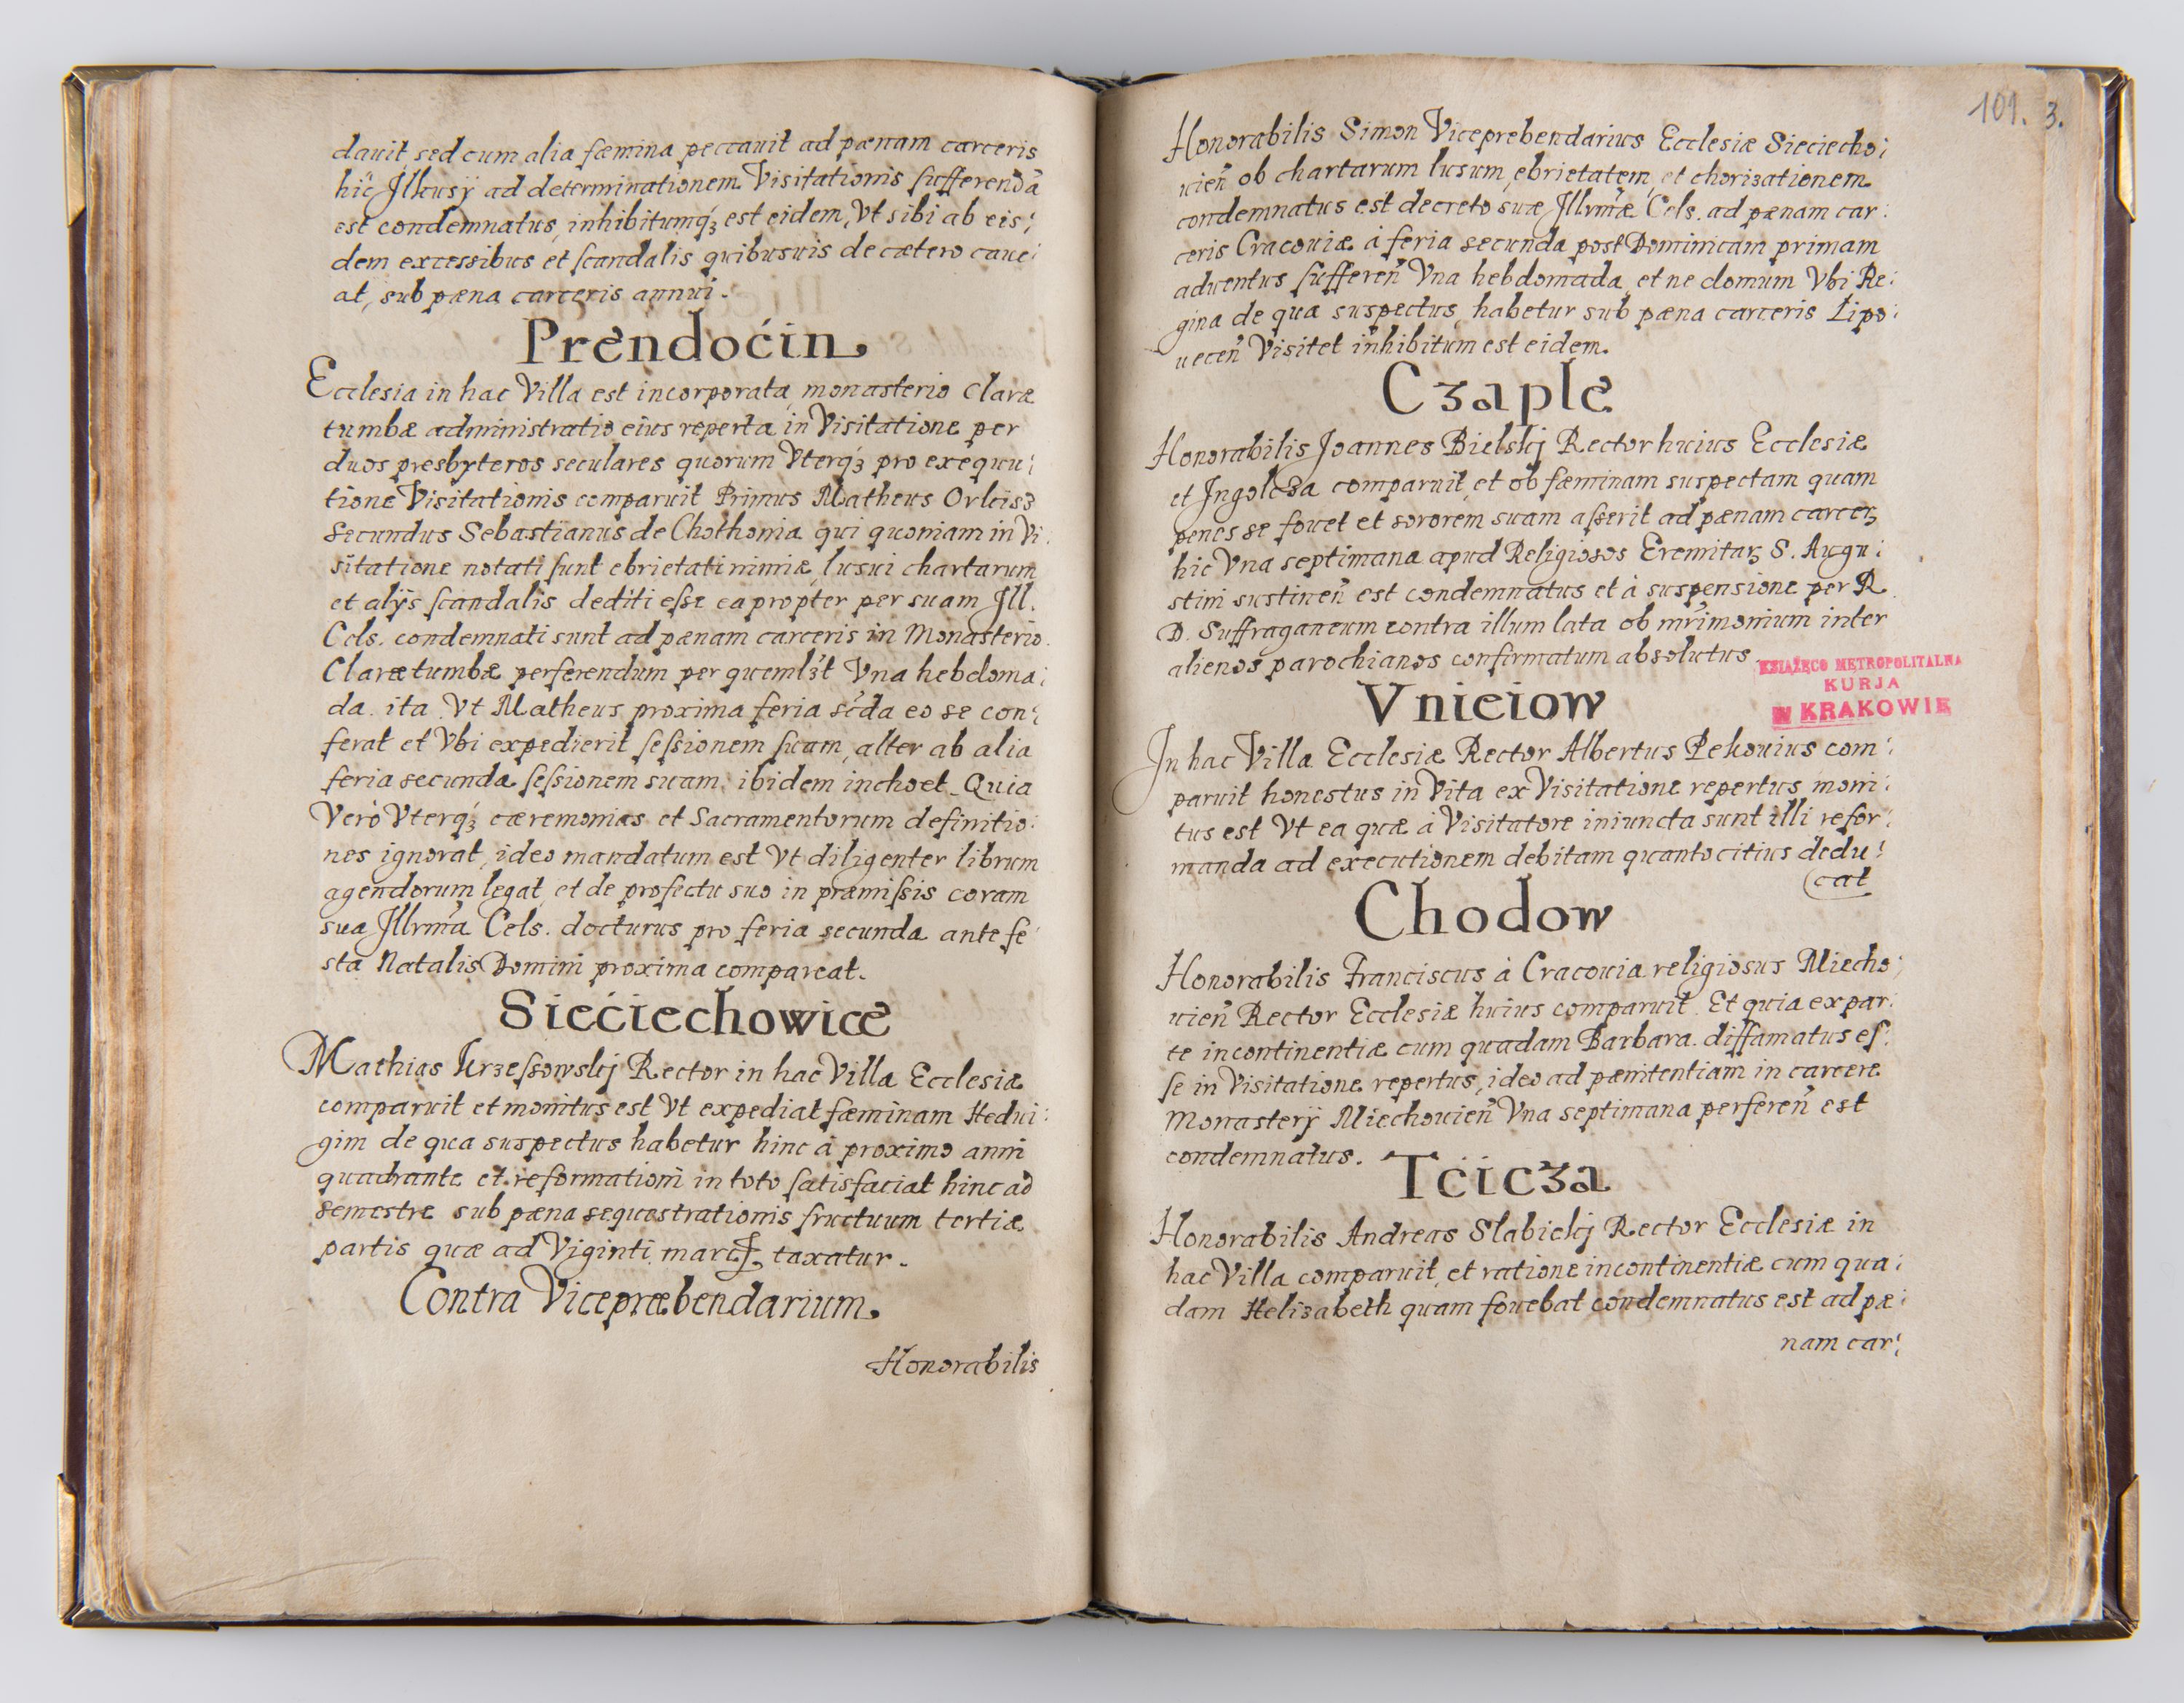 dauit sed cum alia fæmina peccauit ad pænam carceris
hic Jlkusÿ ad determinationem Visitationis sufferendā
est condemnatus, inhibitumq́ʒ est eidem, Vt sibi ab eis:
dem excessibus et scandalis quibusuis de cætero caue:
at, sub pæna carceris annui.
Prendoćin
Ecclesia in hac Villa est incorporata monasterio Claræ
tumbæ administratio eius reperta in Visitatione per
duos presbyteros seculares quorum Vterq́ʒ pro exequu:
tione Visitationis comparuit Primus Matheus
Secundus Sebastianus de Chothonia qui quoniam in Vi:
sitatione notati sunt ebrietati nimiæ, lusui chartarum
et alijs scandalis dediti esse ea propter per suam Jll.
Cels. condemnati sunt ad pænam carceris in Monasterio
Claræ tumbæ perferendum per quemlʒt Vna hebdoma:
da. ita Vt Matheus proxima feria sc̄da eo se con:
ferat et Vbi expedierit sessionem suam, alter ab alia
feria secunda sessionem suam ibidem inchoet. Quia
Verò Vterq́ʒ cæremonias et Sacramentorum definitio:
nes ignorat, ideo mandatum est Vt diligenter librum
agendorum legat, et de profectu suo in præmissis coram
sua Jllrm̄a Cels. docturus pro feria secunda ante fe:
sta Natalis Domini proxima compareat.
Siećiechowice
Mathias Krzessowskj Rector in hac Villa Ecclesiæ
comparuit et monitus est Vt expediat fæminam Hedui:
gim de qua suspectus habetur hinc à proximo anni
quadrante et reformationi in toto satisfaciat hinc ad
semestre sub pæna sequestrationis fructuum tertiæ
partis quæ ad Viginti taxatur.
Contra Vicepræbendarium.
Honorabilis
101. 3.
Honorabilis Simon Viceprebendarius Ecclesiæ Sieciecho:
uien̄ ob chartarum lusum, ebrietatem, et chorisationem
condemnatus est decreto suæ Jllrm̄æ Cels. ad pænam car:
ceris Cracouiæ à feria secunda post Dominicam primam
aduentus sufferen̄ Vna hebdomada, et ne domum Vbi Re:
gina de qua suspectus, habetur sub pæna carceris Lipo:
uecen̄ Visitet inhibitum est eidem.
Cʒaple
Honorabilis Joannes Bielskj Rector huius Ecclesiæ
et comparuit, et ob fæminam suspectam quam
penes se fouet et sororem suam asserit ad pænam carcerʒ
hic Vna septimana apud Religiosos Eremitarʒ S. Augu:
stini sustinen̄ est condemnatus et à suspensione per R.
D. Suffraganeum contra illum lata ob mr̄imonium inter
alienos parochianos confirmatum absolutus
KSIĄŻĘCO METROPOLITALNA
KURJA
W KRAKOWIE
Vnieiow
In hac Villa Ecclesiæ Rector Albertus Pekouius com:
paruit honestus in Vita ex Visitatione repertus, moni:
tus est Vt ea quæ à Visitatore iniuncta sunt illi refor:
manda ad executionem debitam quantocitius dedu:
cat
Chodow
Honorabilis Franciscus à Cracouia religiosus Miecho:
uien̄ Rector Ecclesiæ huius comparuit. Et quia ex par:
te incontinentiæ cum quadam Barbara diffamatus es:
se in Visitatione repertus, ideo ad pænitentiam in carcere
Monasterij Miechouien̄ Vna septimana perferen̄ est
condemnatus.
Tćicʒa
Honorabilis Andreas Slabickj Rector Ecclesiæ in
hac Villa comparuit, et ratione incontinentiæ cum qua:
dam Helisabeth quam fouebat condemnatus est ad pæ:
nam car: